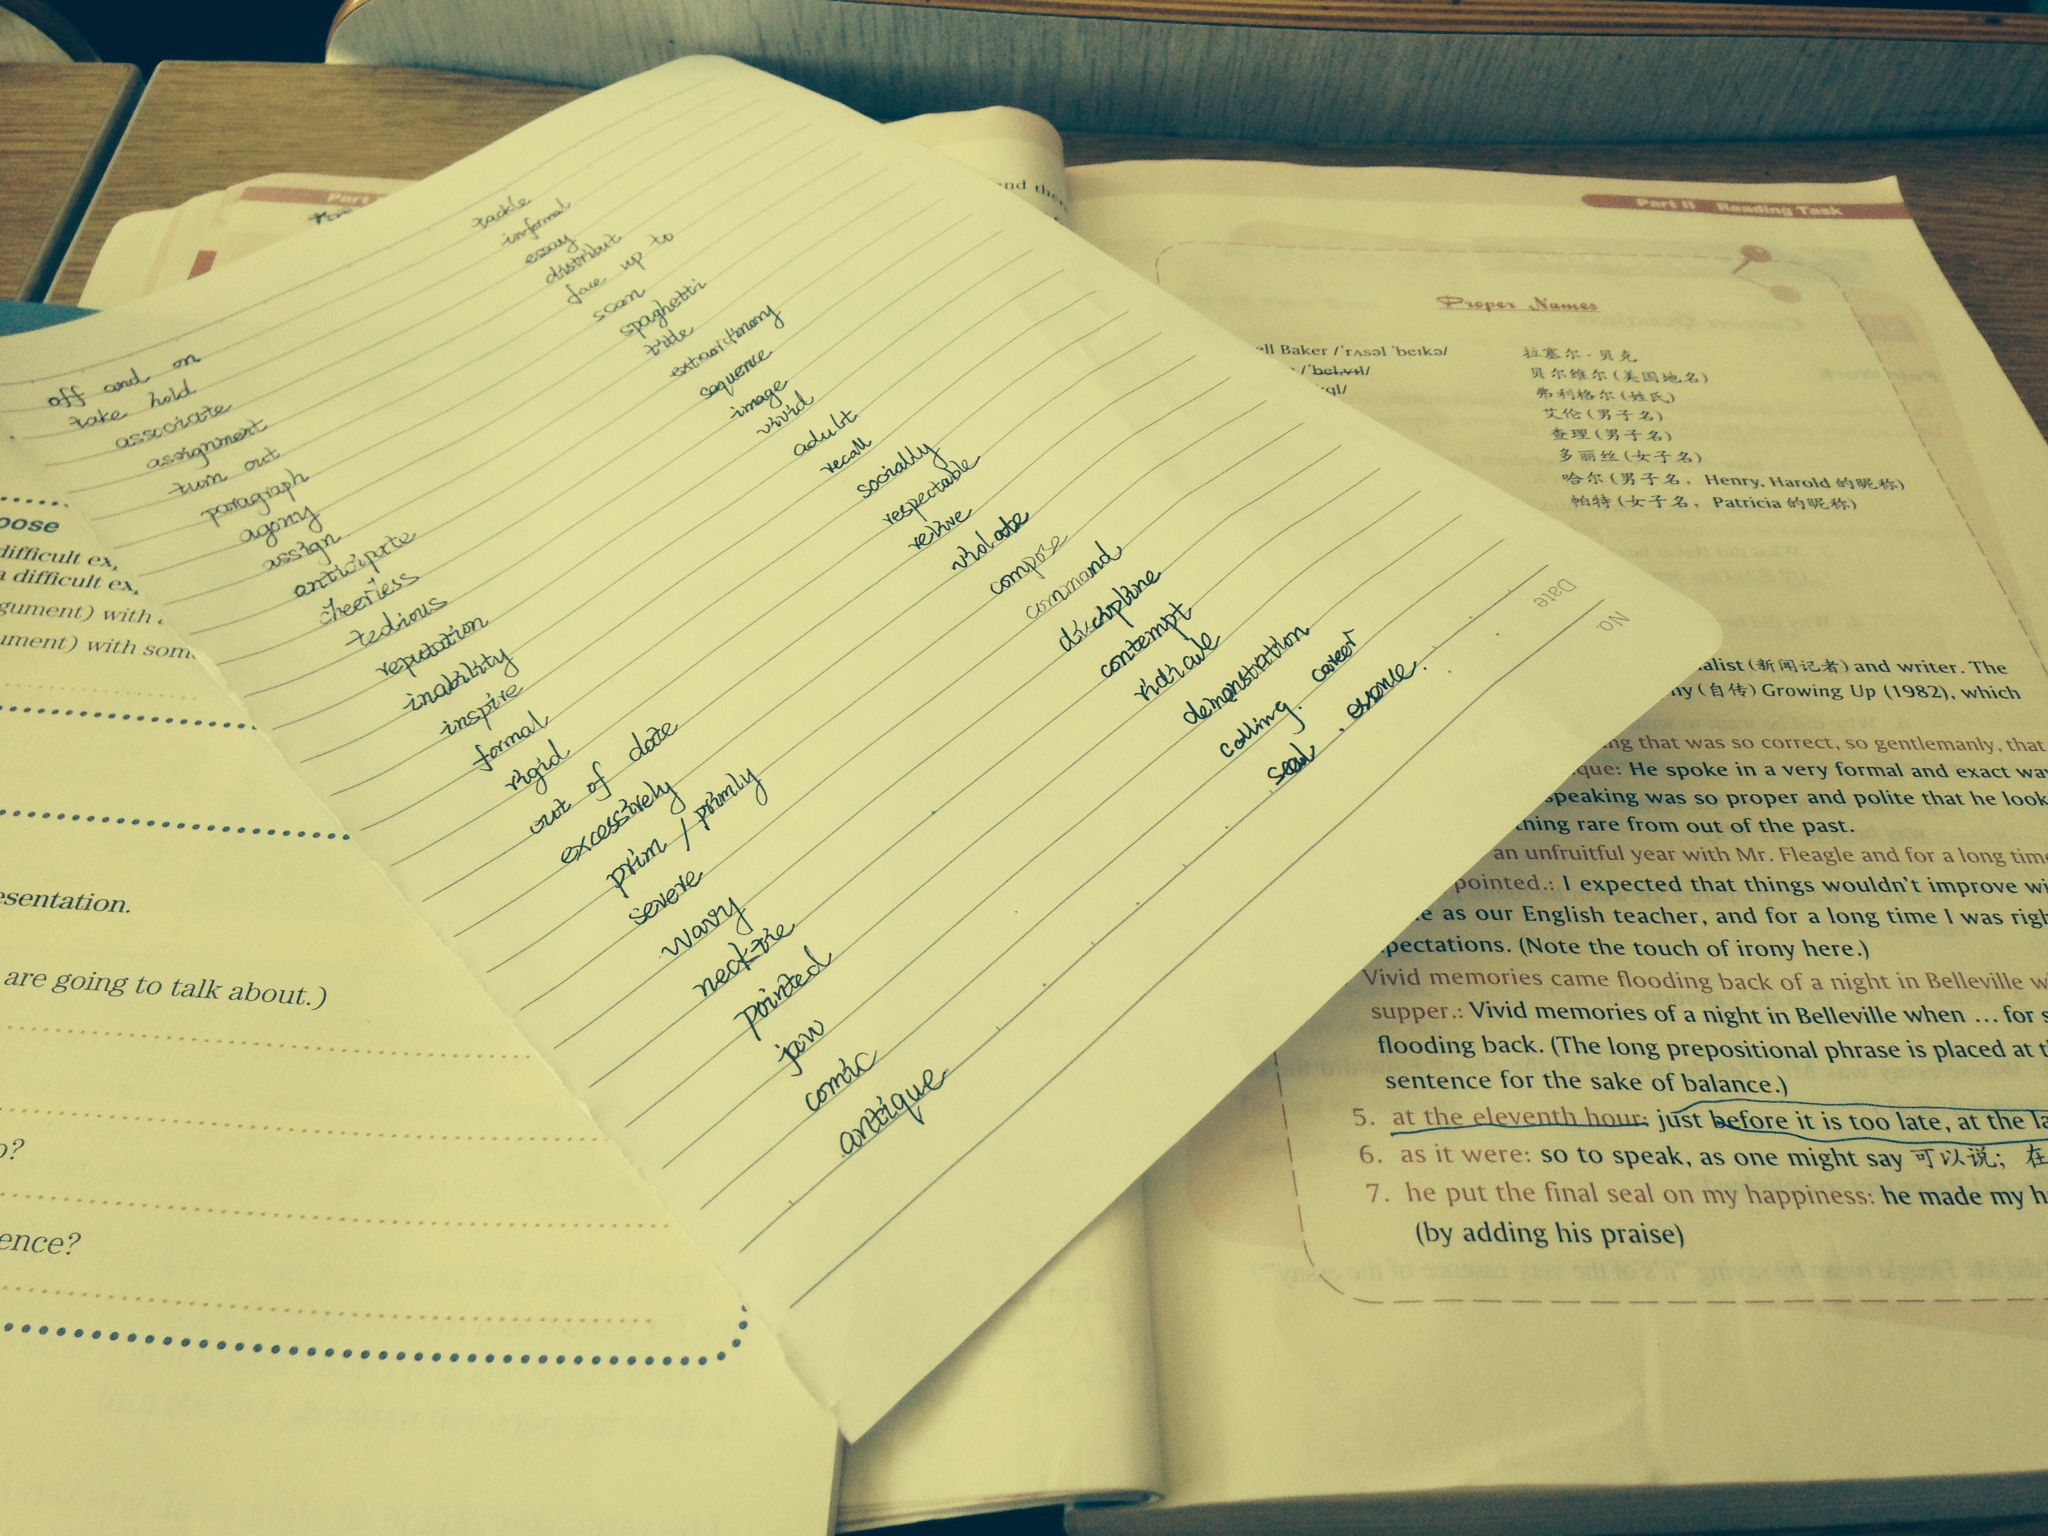 off and on
take hold
associate
assignment
turn out
paragraph
agony
assign
anticipate
cheerless
tedious
reputation
inability
inspire
formal
rigid
out of date
excessively
prim / primly
severe
wavy
necktie
pointed
jaw
comic
antique
tackle
informal
essay
distribut
face up to
scan
spaghetti
title
extraordinary
sequence
image
vivid
adult
recall
socially
respectable
relive
violate
compose
command
discipline
contempt
ridicule
demonstration
calling. career
seal . essence.
Date
No.
Part
and the
Part II Reading Task
Proper Names
ell Baker /ˈrʌsəl ˈbeɪkə/ 拉塞尔·贝克
贝尔维尔(美国地名)
弗利格尔(姓氏)
艾伦(男子名)
查理(男子名)
多丽丝(女子名)
哈尔(男子名, Henry, Harold 的昵称)
帕特(女子名, Patricia 的昵称)
alist (新闻记者) and writer. The
hy (自传) Growing Up (1982), which
ng that was so correct, so gentlemanly, that
que: He spoke in a very formal and exact wa
speaking was so proper and polite that he look
thing rare from out of the past.
an unfruitful year with Mr. Fleagle and for a long time
pointed.: I expected that things wouldn't improve wi
e as our English teacher, and for a long time I was righ
xpectations. (Note the touch of irony here.)
Vivid memories came flooding back of a night in Belleville w
supper.: Vivid memories of a night in Belleville when ... for s
flooding back. (The long prepositional phrase is placed at th
sentence for the sake of balance.)
5. at the eleventh hour: just before it is too late, at the la
6. as it were: so to speak, as one might say 可以说; 在
7. he put the final seal on my happiness: he made my h
(by adding his praise)
pose
difficult ex,
a difficult ex,
gument) with
ument) with som
esentation.
are going to talk about.)
o?
ence?